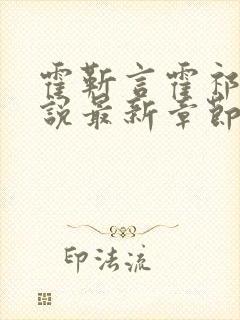 霍靳言霍祁
说最新章节
印法流